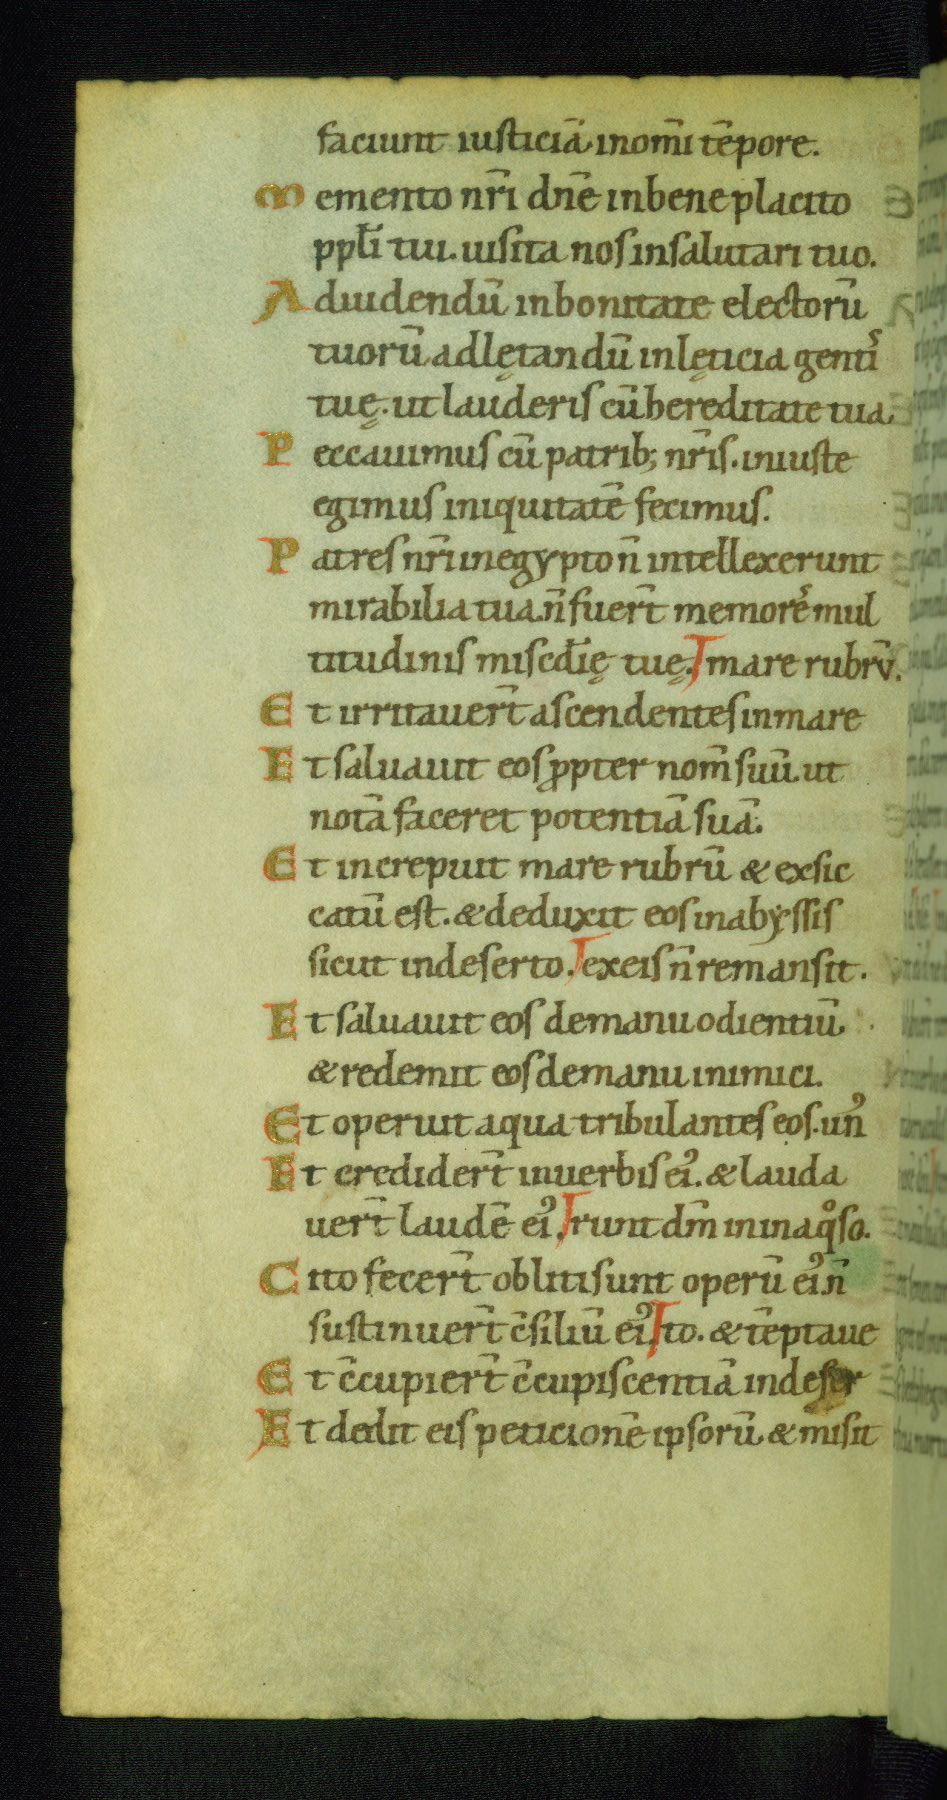 faciunt iusticiā. inom̄i tēpore.
Memento nr̄i dn̄e inbene placito
ppl̄i tui. uisita nos insalutari tuo.
Aduidendū inbonitate electorū
tuorū. adlętandū inlęticia genti᷒
tuę. ut lauderis cū hereditate tua.
Peccauimus cū patrib; nr̄is. iniuste
egimus iniquitatē fecimus.
Patres nr̄i inegypto n̄ intellexerunt
mirabilia tua. n̄ fuer̄t memores mul
titudinis misc̄dię tuę. mare rubrū.
Et irritauer̄t ascendentes inmare
Et saluauit eos ꝓpter nom̄ suū. ut
notā faceret potentiā suā.
Et increpuit mare rubrū & exsic
catū est. & deduxit eos inabyssis
sicut indeserto. exeis n̄ remansit.
Et saluauit eos demanu odientiū.
& redemit eos demanu inimici.
Et operuit aqua tribulantes eos. un᾽
Et credider̄t inuerbis ei᾽. & lauda
uer̄t laudē ei᾽. runt dm̄ ininaqͦso.
Cito fecer̄t obliti sunt operū ei᾽. n̄
sustinuer̄t c̄siliū ei᾽. to. & tēptaue
Et c̄cupier̄t c̄cupiscentiā indeser
Et dedit eis peticionē ipsorū. & misit